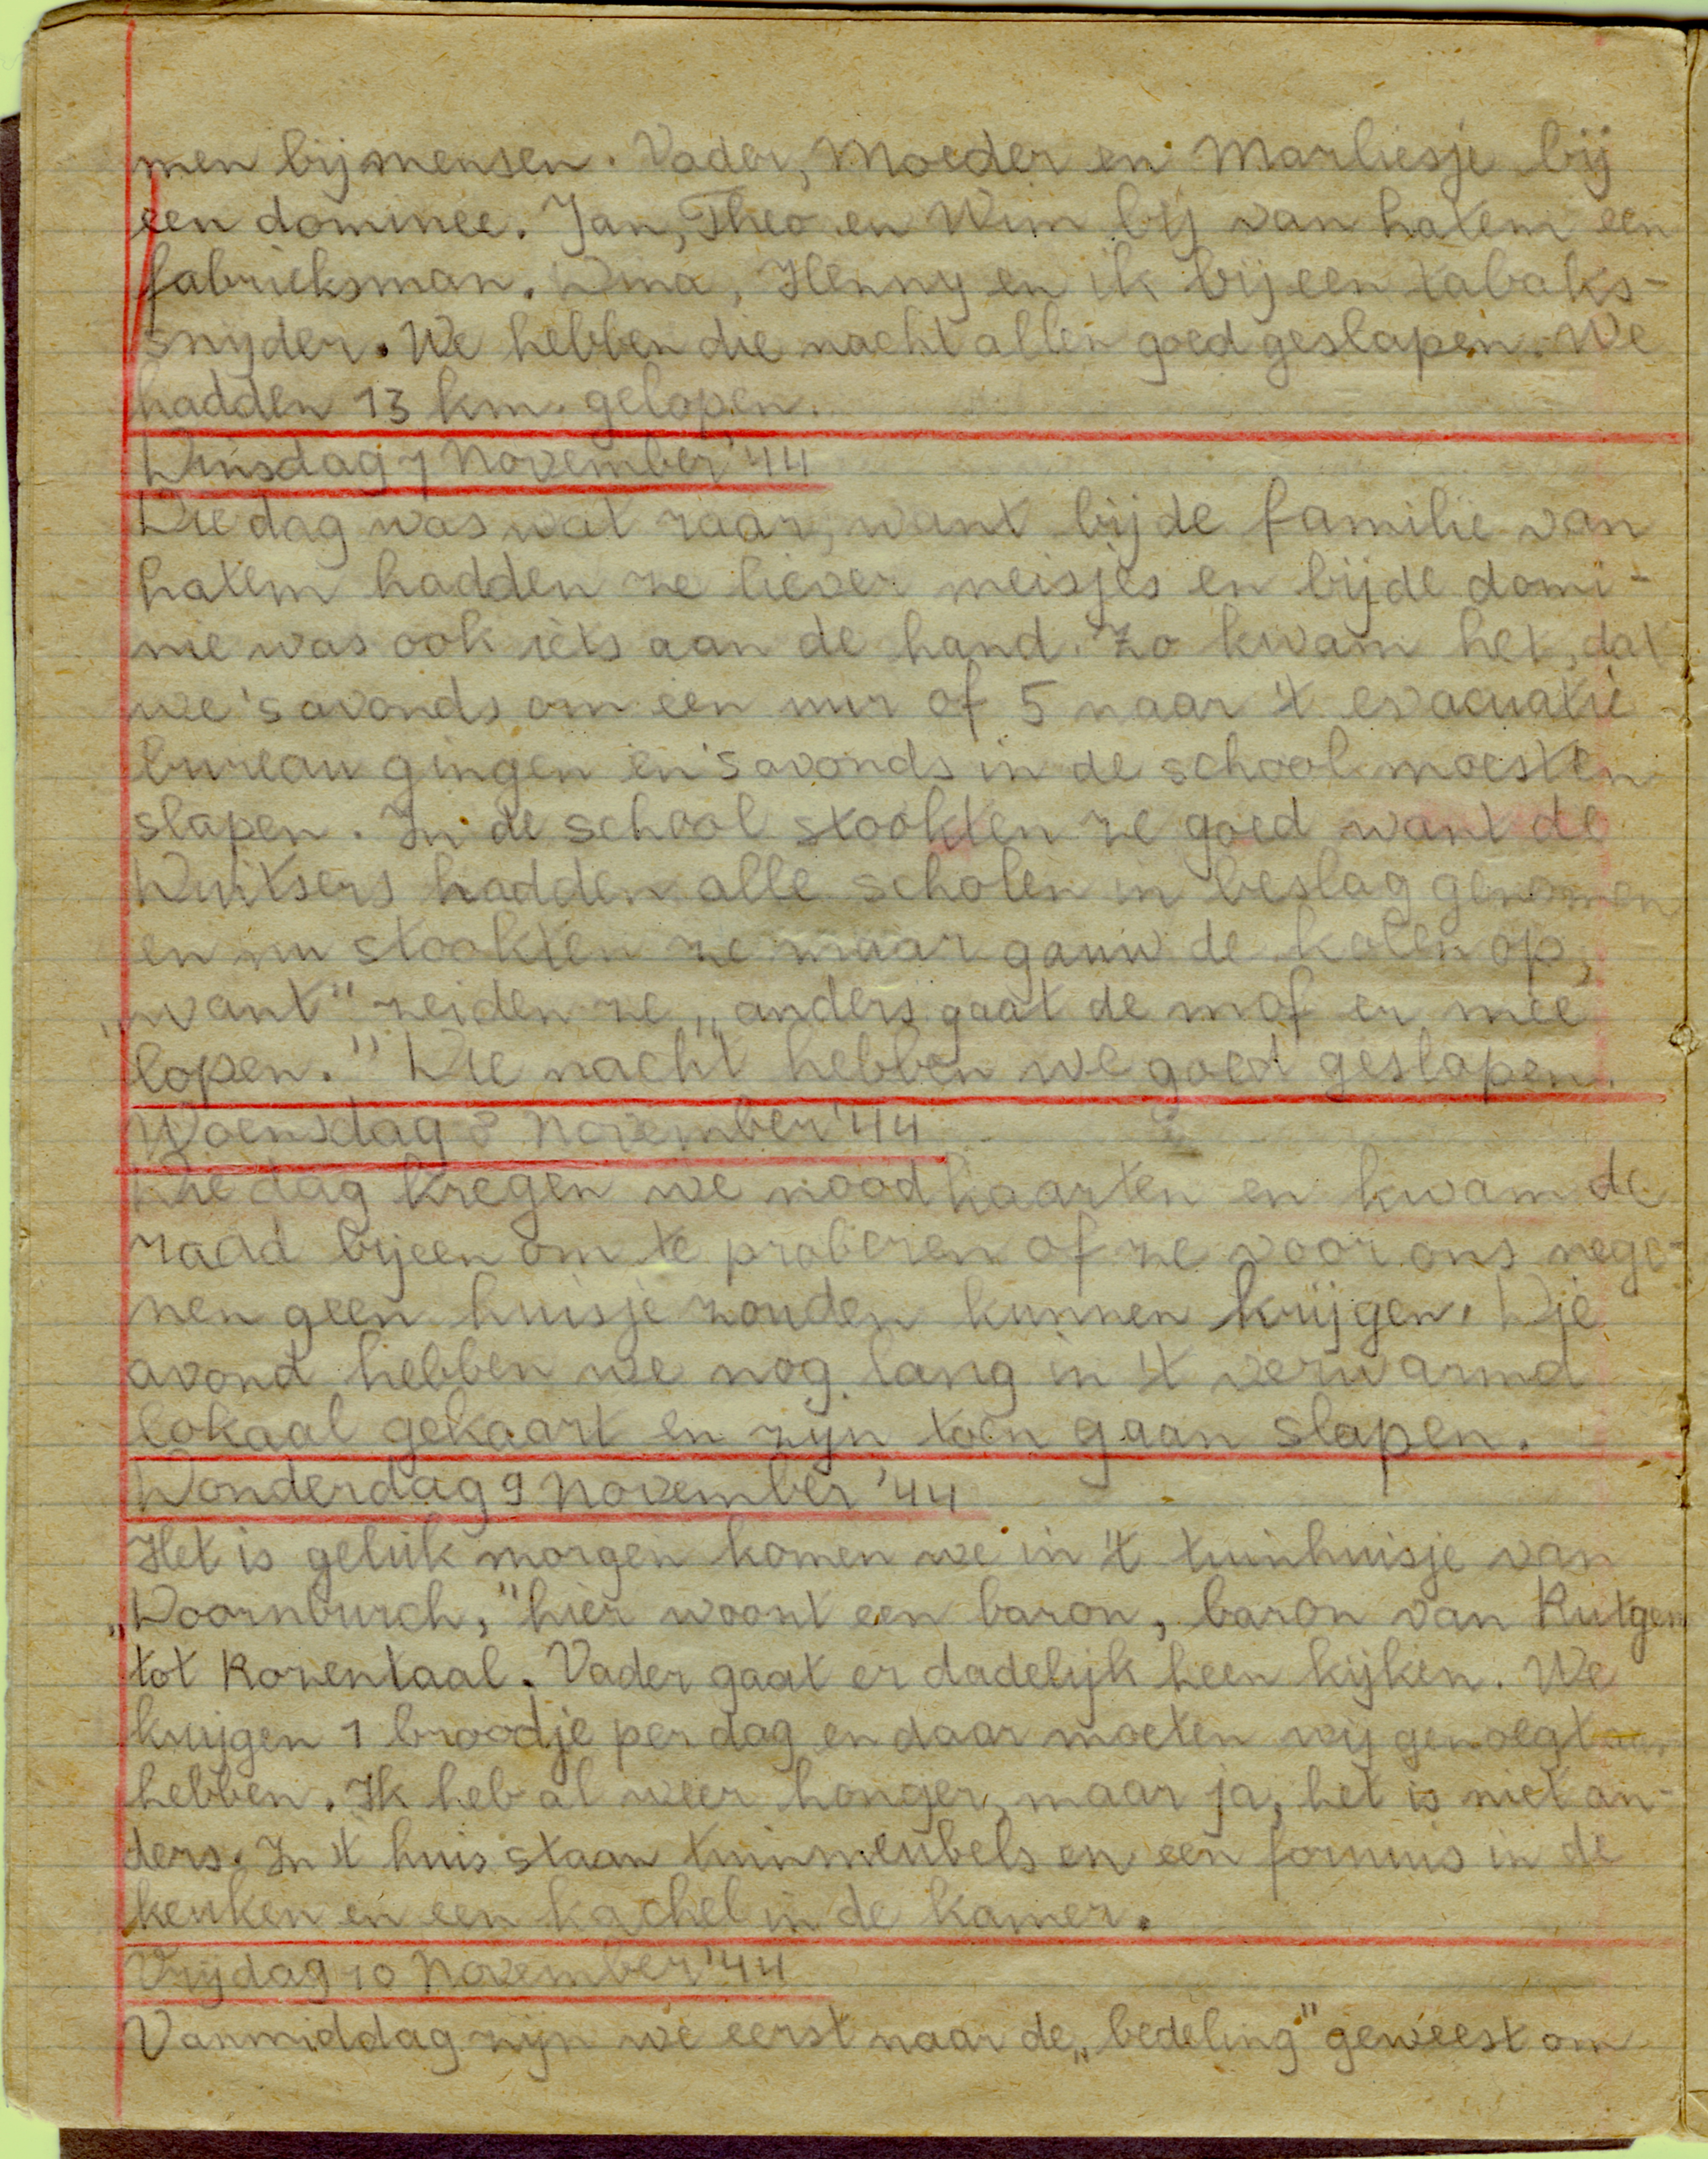 men bij mensen. Vader, Moeder en Marliesje bij
een dominee. Jan, Theo en Wim bij van hatem een
fabrieksman. Dina, Henny en ik bij een tabaks-
snyder. We hebben die nacht allen goed geslapen. We
hadden 13 km. gelopen.
Dinsdag 7 November '44
Die dag was wat raar, want bij de familie van
hatem hadden ze liever meisjes en bij de domi-
nie was ook iets aan de hand. Zo kwam het, dat
we 's avonds om een uur of 5 naar 't evacuatie
bureau gingen en 's avonds in de school moesten
slapen. In de school stookten ze goed want de
Duitsers hadden alle scholen in beslag genomen
en nu stookten ze maar gauw de kolen op,
„want" zeiden ze „anders gaat de mof er mee
lopen." Die nacht hebben we goed geslapen.
Woensdag 8 November '44
Die dag kregen we noodkaarten en kwam de
raad bijeen om te proberen of ze voor ons nege-
nen geen huisje zouden kunnen krijgen. Die
avond hebben we nog lang in 't verwarmd
lokaal gekaart en zijn toen gaan slapen.
Donderdag 9 November '44
Het is geluk morgen komen we in 't tuinhuisje van
„Doornburch," hier woont een baron, baron van Rutgen
tot Rozentaal. Vader gaat er dadelijk heen kijken. We
krijgen 1 broodje per dag en daar moeten wij genoegt
hebben. Ik heb al weer honger, maar ja, het is niet an-
ders. In 't huis staan tuinmeubels en een fornuis in de
keuken en een kachel in de kamer.
Vrijdag 10 November '44
Vanmiddag zijn we eerst naar de „bedeling" geweest om